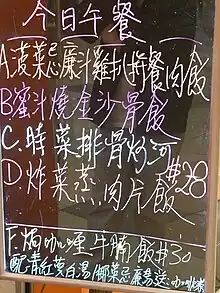 今日午餐
A.菠菜忌廉斗雞扒拼餐肉飯
B蜜斗燒金沙骨飯
C.時菜排骨炒河
D.炸菜蒸肉片飯 $28
F.焗咖喱牛腩飯$30
配青紅黃白湯/椰菜忌廉